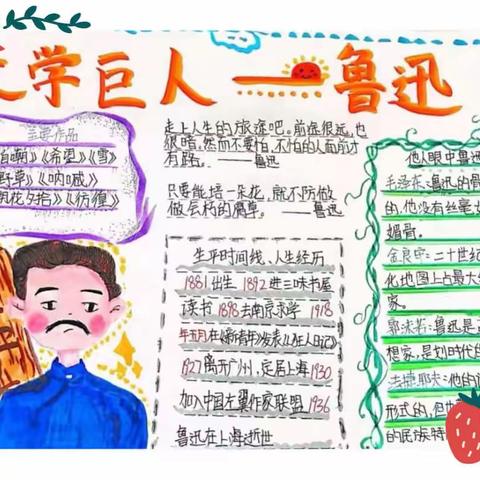 文学巨人——鲁迅
主要作品
《希望》《雪》
《呐喊》
《朝花夕拾》《彷徨》
走上人生的旅途吧。前途很远,也
很暗。然而不要怕,不怕的人面前才
有路。——鲁迅
只要能培一朵花,就不妨做
做会朽的腐草。——鲁迅
生平时间线、人生经历
1881出生 1892进三味书屋
读书 1898去南京求学 1918
年五月在《新青年》发表《狂人日记》
1927离开广州,定居上海1930
加入中国左翼作家联盟1936
鲁迅在上海逝世
他人眼中鲁迅
毛泽东:鲁迅的骨
的,他没有丝毫
媚骨。
金良守:二十世纪
化地图上占最大
家。
郭沫若:鲁迅是
想家,是划时代的
法捷耶夫:他的
形式的,但
的民族特